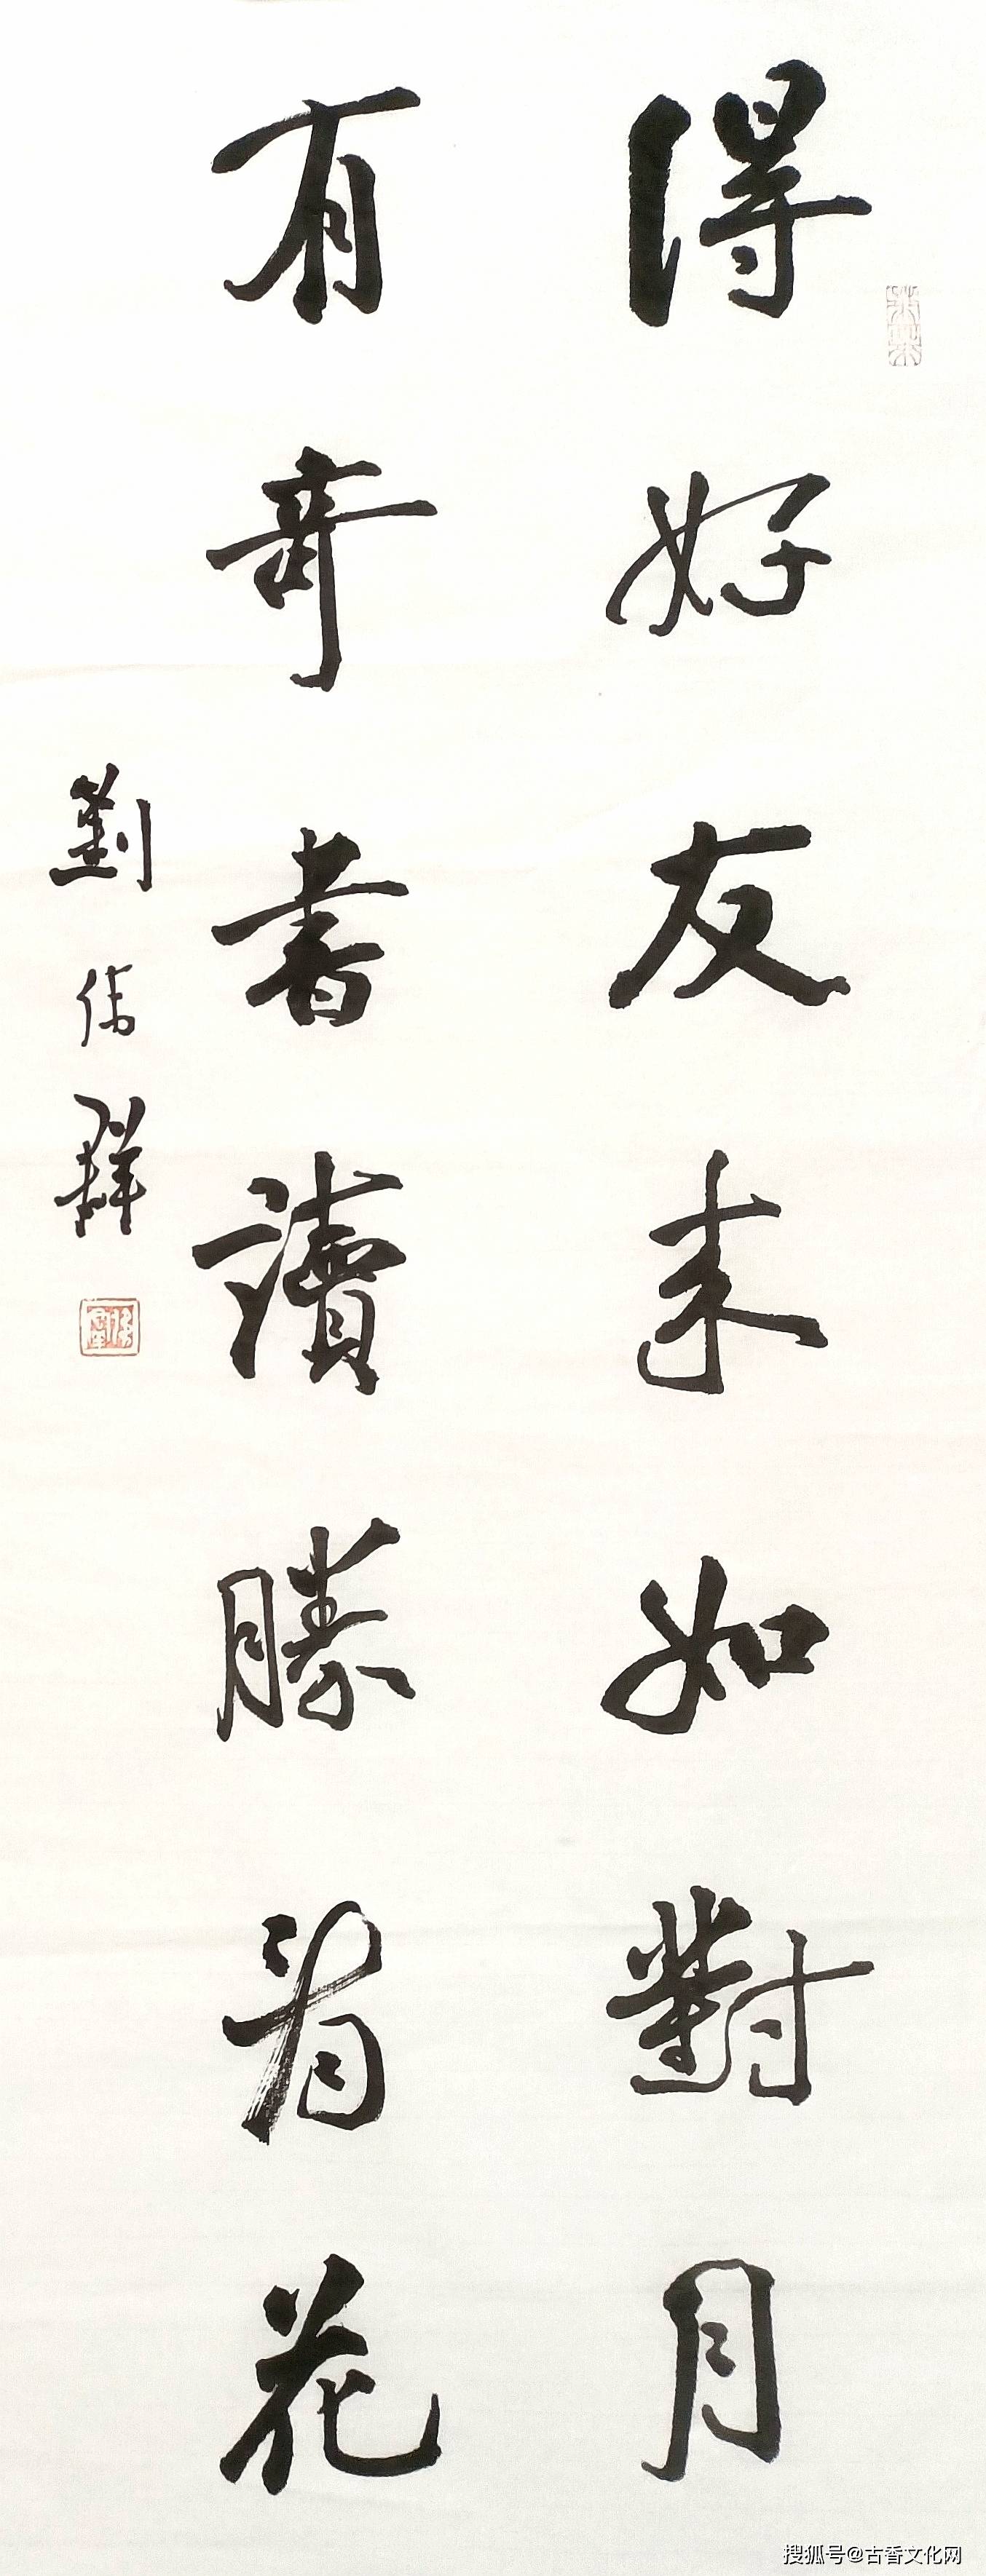 得好友来如對月
有奇書讀勝看花
劉偉群
搜狐号@古香文化网